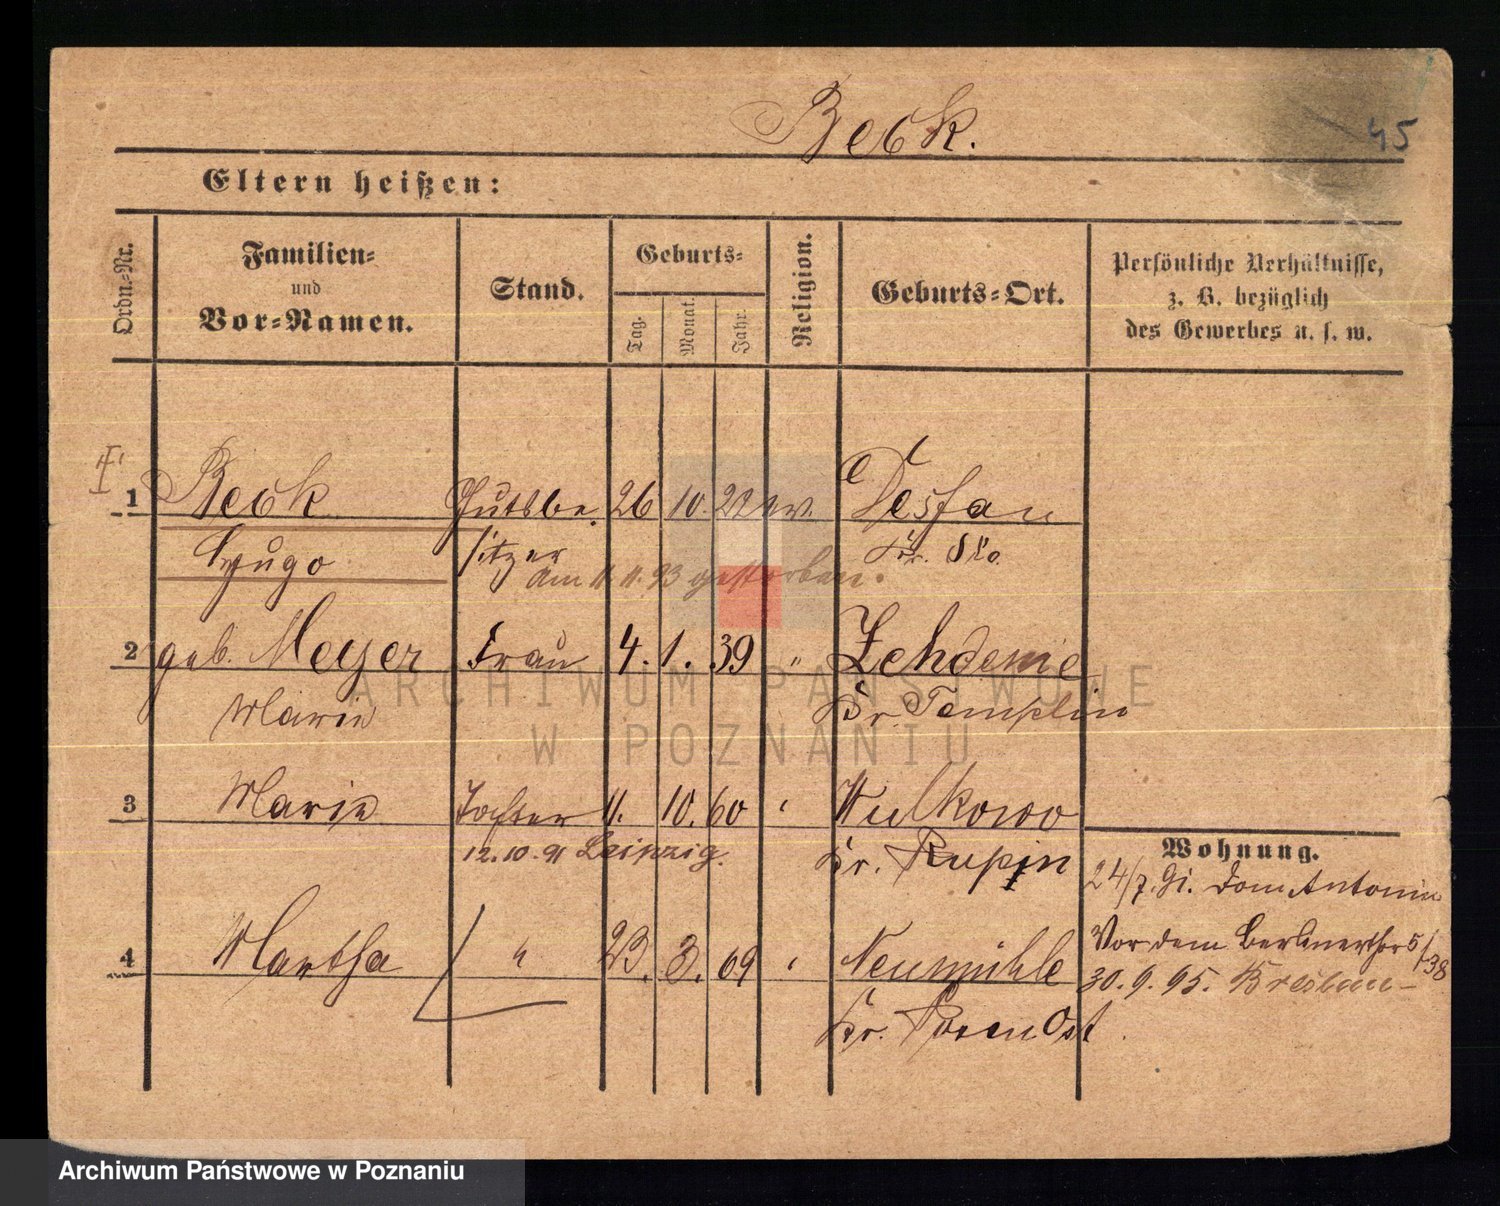 Beck.
45
Eltern heißen:
Ordn.-Nr.
Familien-
und
Vor-Namen.
Stand.
Geburts-
Tag.
Monat.
Jahr.
Religion.
Geburts-Ort.
Persönliche Verhältnisse,
z. B. bezüglich
des Gewerbes u. s. w.
1 Beck Gutsbe. 26 10. ev.
Hugo sitzer Kr.
am 11.11.93 gestorben.
2 geb. Meyer Frau 4. 1. 39 " Zehdenic
Marie Kr. Templin
3 Marie Tochter 11. 10. 60 " Wulkowo
12.10.91 Leipzig. Kr. Rupin
Wohnung.
24/7. 91. Dom Antonin
4 Martha " 23. 3. 69 " Neumühle
Kr. Posen Ost
Vor dem Berlinerthor 5
30.9.95. Breslau
ARCHIWUM PAŃSTWOWE
W POZNANIU
Archiwum Państwowe w Poznaniu